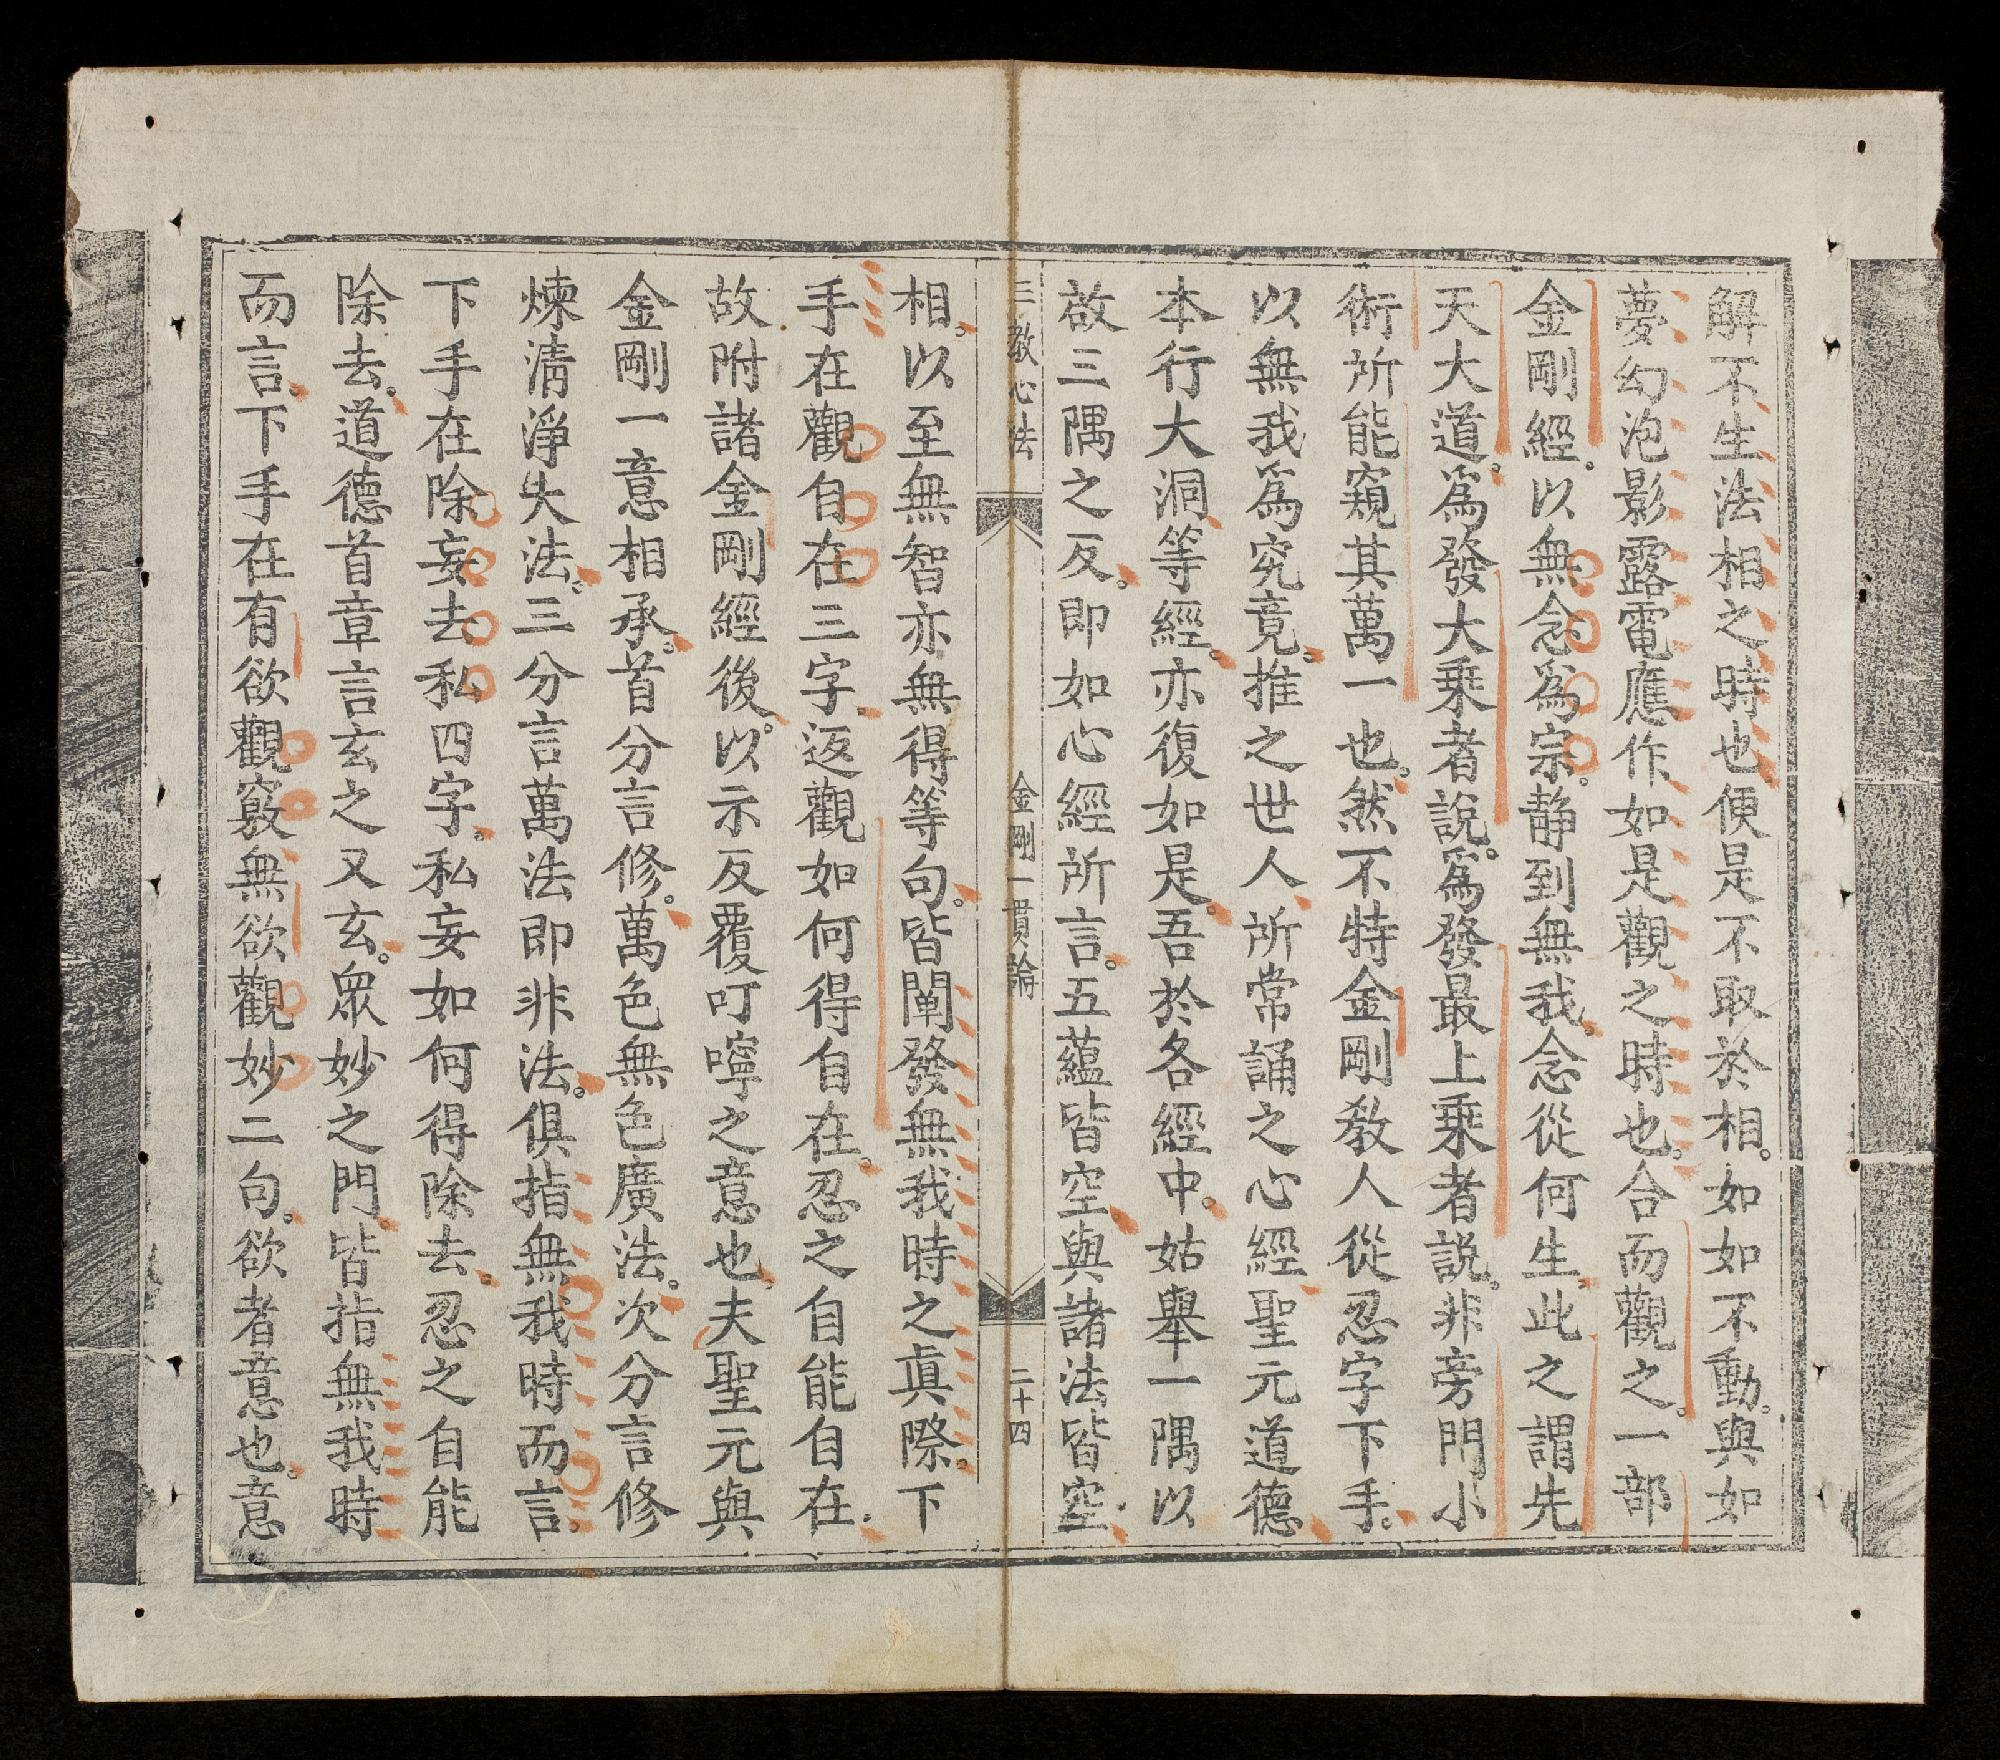 解不生法相之時也便是不取於相。如如不動。與如
夢幻泡影露電應作如是觀之時也。合而觀之。一部
金剛經。以無念爲宗。靜到無我。念從何生。此之謂先
天大道。爲發大乘者說。爲發最上乘者說。非旁門小
術所能窺其萬一也。然不特金剛敎人從忍字下手。
以無我爲究竟。推之世人所常誦之心經聖元道德
本行大洞等經。亦復如是。吾於各經中。姑舉一隅以
故三隅之反。即如心經所言。五蘊皆空。與諸法皆空
三教心法 金剛一貫論 二十四
相。以至無智亦無得等句。皆闡發無我時之眞際。下
手在觀自在三字。返觀如何得自在。忍之自能自在。
故附諸金剛經後。以示反覆叮嚀之意也。夫聖元與
金剛一意相承。首分言修。萬色無色廣法。次分言修
煉淸淨失法。三分言萬法即非法。俱指無我時而言。
下手在除妄去私四字。私妄如何得除去。忍之自能
除去。道德首章言玄之又玄。衆妙之門。皆指無我時
而言。下手在有欲觀竅無欲觀妙二句。欲者意也。意